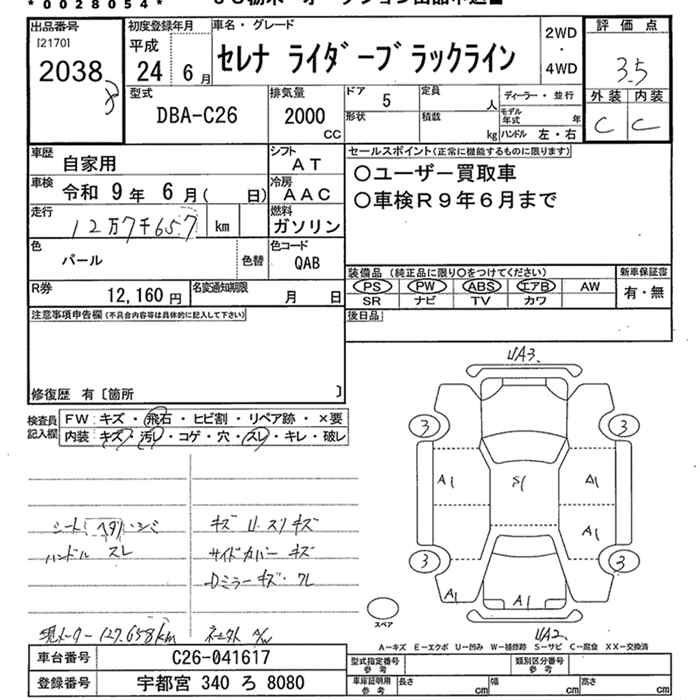 *0028054*
出品番号
[2170]
2038
初度登録年月
平成
24年6月
車名・グレード
セレナ ライダーブラックライン
2WD
・
4WD
評価点
3.5
外装 内装
C C
型式
DBA-C26
排気量
2000
CC
ドア 5
定員 人
形状
積載 kg
ディーラー・並行
モデル年式 年
ハンドル 左・右
車歴 自家用
シフト AT
車検 令和 9年 6月( 日)
冷房 AAC
走行 12万7千657 km
燃料 ガソリン
色 パール 色替
色コード QAB
R券 12,160円
名変通知期限 月 日
セールスポイント(正常に機能するものに限ります)
○ユーザー買取車
○車検R9年6月まで
装備品(純正品に限り○をつけてください)
PS PW ABS エアB AW
SR ナビ TV カワ
新車保証書
有・無
後日品
注意事項申告欄(不具合内容等は具体的に記入して下さい)
修復歴 有〔箇所 〕
検査員記入欄
FW:キズ・飛石・ヒビ割・リペア跡・×要
内装:キズ・汚レ・コゲ・穴・スレ・キレ・破レ
シートヘタリ・シミ
ハンドル スレ
キズ U.スリキズ
サイドカバー キズ
Dミラーキズ・ワレ
現メーター127.658km
UA3.
3
3
A1
S1
A1
A1
3
3
A1
A1
UA2.
スペア
A-キズ E-エクボ U-凹み W-補修跡 S-サビ C-腐食 XX-交換済
車台番号 C26-041617
登録番号 宇都宮 340 ろ 8080
型式指定番号
参考
類別区分番号
参考
車庫証明用
参考
長さ cm
幅 cm
高さ cm